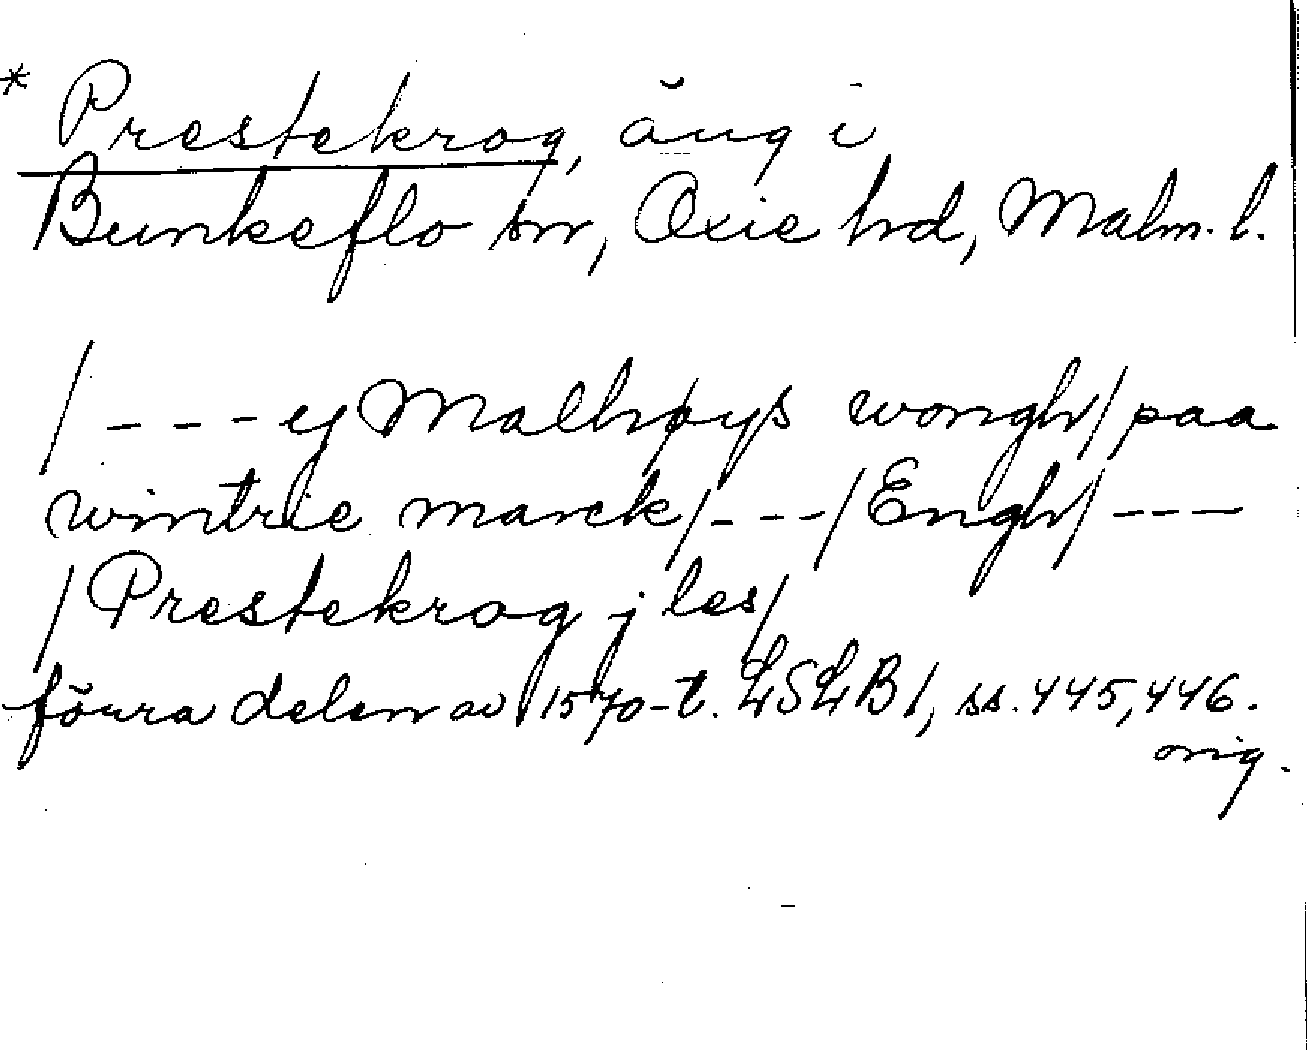 * Prestekrog, äng i
Bunkeflo sn, Oxie hd, Malm. l.
/ - - - ej Malhøys wongh / paa
wintrie marck / - - - / Engh / - - -
/ Prestekrog j les /
förra delen av 1570-t. LSLB 1, ss. 445, 446.
orig.